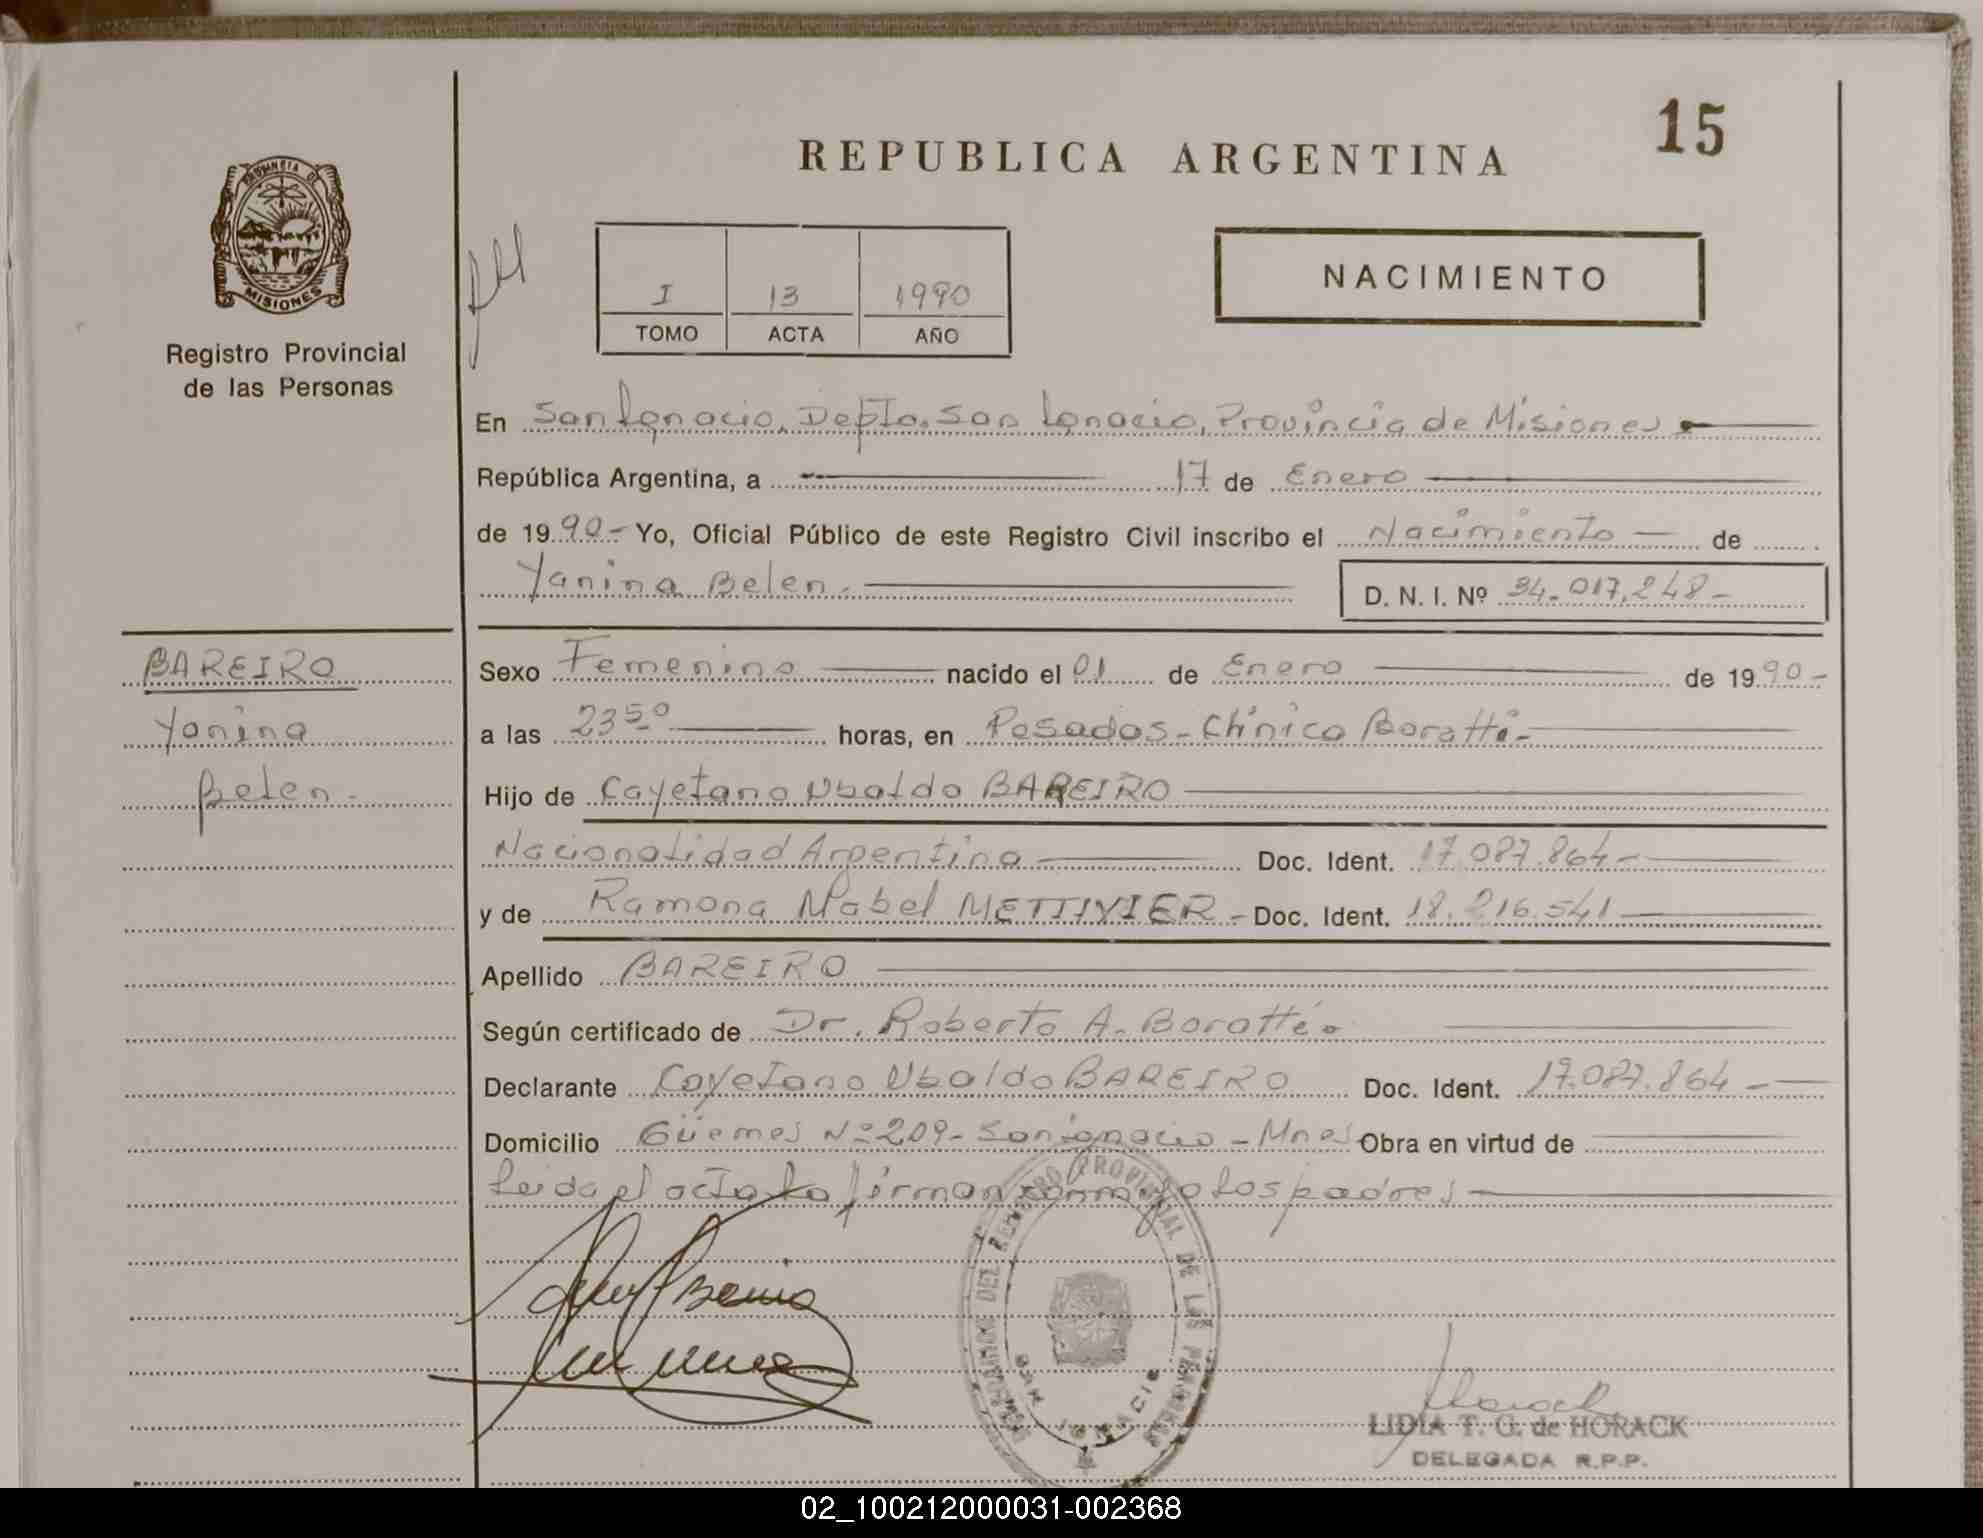 15
REPUBLICA ARGENTINA
PROVINCIA DE
MISIONES
Registro Provincial
de las Personas
I 13 1990
TOMO ACTA AÑO
NACIMIENTO
En San Ignacio, Depto. San Ignacio, Provincia de Misiones
República Argentina, a 17 de Enero
de 1990- Yo, Oficial Público de este Registro Civil inscribo el Nacimiento de
Yanina Belen.
D. N. I. Nº 34.017.248-
BAREIRO
Yanina
Belen-
Sexo Femenino nacido el 01 de Enero de 1990-
a las 23 50 horas, en Posadas-Clínica Boratti-
Hijo de Cayetano Ubaldo BAREIRO
Nacionalidad Argentina Doc. Ident. 17.087.864-
y de Ramona Mabel METTIVIER- Doc. Ident. 18.216.541
Apellido BAREIRO
Según certificado de Dr. Roberto A. Boratti
Declarante Cayetano Ubaldo BAREIRO Doc. Ident. 17.087.864-
Domicilio Güemes Nº 209- San Ignacio - Mnes Obra en virtud de
Leida el acta la firman conmigo los padres
DEL REGISTRO PROVINCIAL DE LAS PERSONAS
SAN IGNACIO
LIDIA T. G. de HORACK
DELEGADA R.P.P.
02_100212000031-002368